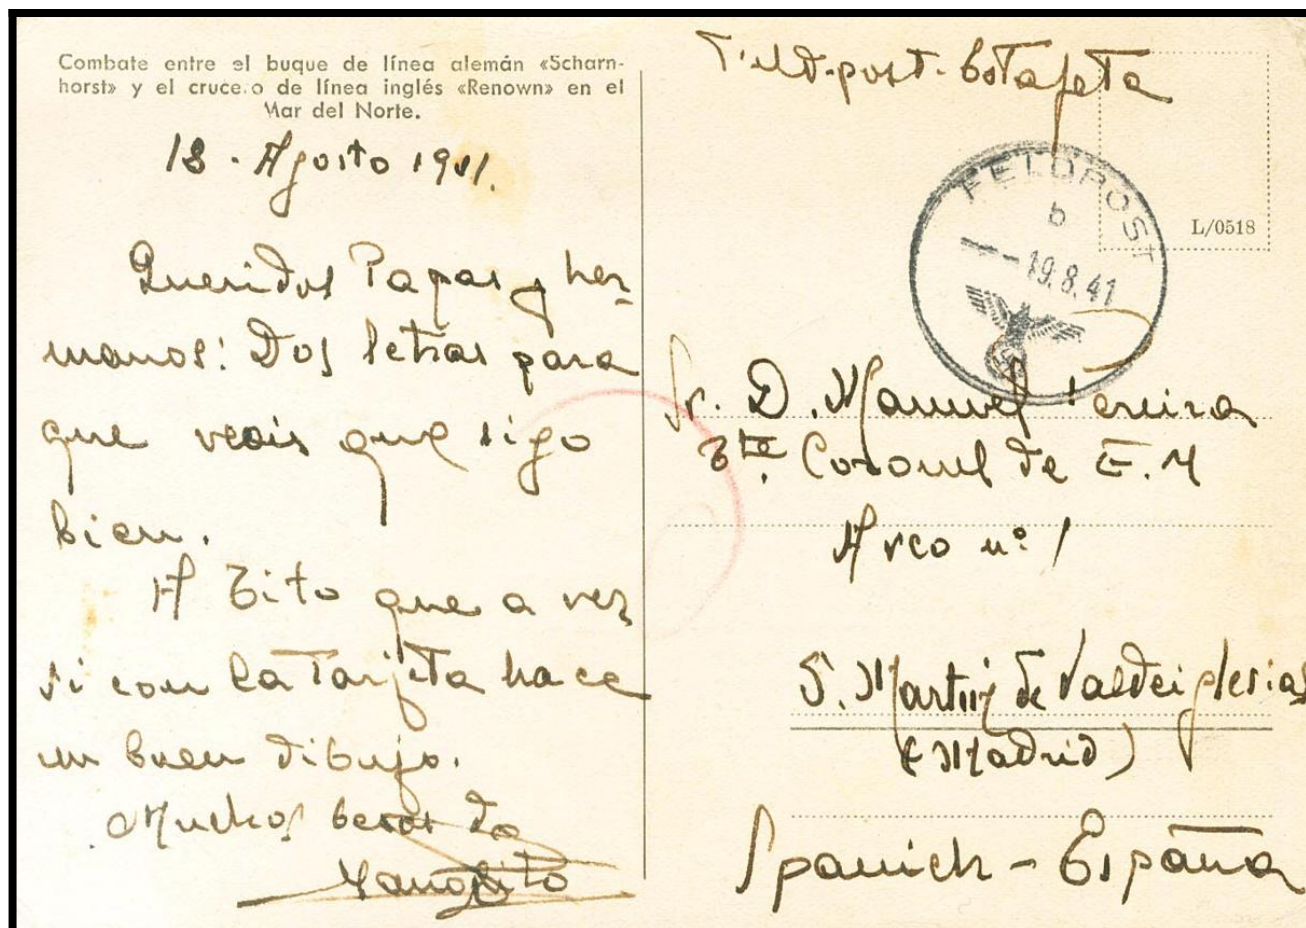 Combate entre el buque de línea alemán «Scharn-
horst» y el crucero de línea inglés «Renown» en el
Mar del Norte.
18 - Agosto 1941.
Queridos Papas y her-
manos: Dos letras para
que veais que sigo
bien.
A Tito que a ver
si con la Tarjeta hace
un buen dibujo.
Muchos besos de
Manolito
Feld-post-Estafeta
FELDPOST
b
-19.8.41
L/0518
Sr. D. Manuel Pereira
Tte. Coronel de E.M
Arco nº 1
S. Martin de Valdeiglesias
(Madrid)
Spanich - España